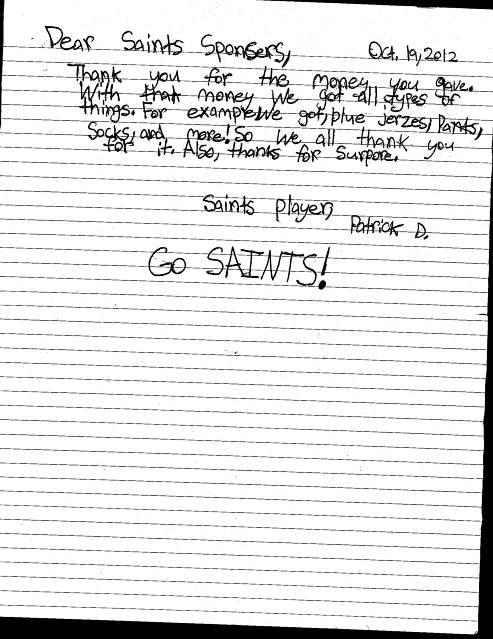 Dear Saints Sponsers,
Oct. 19, 2012
Thank you for the money you gave.
With that money we got all types of
things. For example we got, blue Jerzes, Pants,
Socks, and more! So we all thank you
for it. Also, thanks for Surpore.
Saints player,
Patrick D.
GO SAINTS!